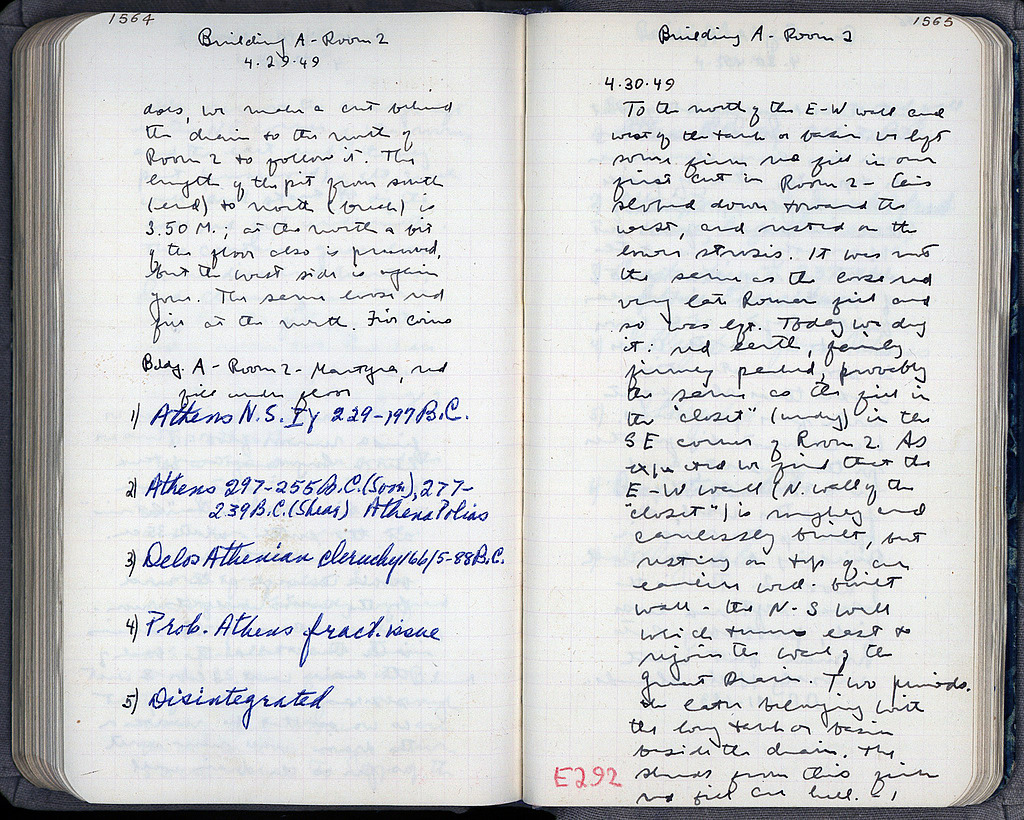 1564
Building A - Room 2
4.29.49
does, we make a cut behind
the drain to the north of
Room 2 to follow it. The
length of the pit from south
(end) to north (break) is
3.50 M.; at the north a bit
of the floor also is preserved,
but the west side is again
gone. The same loose red
fill at the north. Five coins
Bldg. A - Room 2 - Martyra, red
fill under floor
1) Athens N.S. 229-197 B.C.
2) Athens 297-255 B.C. (Svor.), 277-
239 B.C. (Shear) Athena Polias
3) Delos Athenian cleruchy 166/5-88 B.C.
4) Prob. Athens fract. issue
5) Disintegrated
1565
Building A - Room 2
4.30.49
To the north of the E-W wall and
west of the tank or basin we left
some firm red fill in our
first cut in Room 2 - this
sloped down toward the
west, and rested on the
lower strosis. It was not
the same as the loose red
very late Roman fill and
so was left. Today we dug
it: red earth, fairly
firmly packed, probably
the same as the fill in
the "closet" (undug) in the
SE corner of Room 2. As
expected we find that the
E-W wall (N. wall of the
"closet") is roughly and
carelessly built, but
resting on top of an
earlier well built
wall - the N-S wall
which turns east to
rejoin the wall of the
great drain. Two periods.
the later belonging with
the long tank or basin
beside the drain. The
sherds from this firm
red fill are Hell. - 1
E292